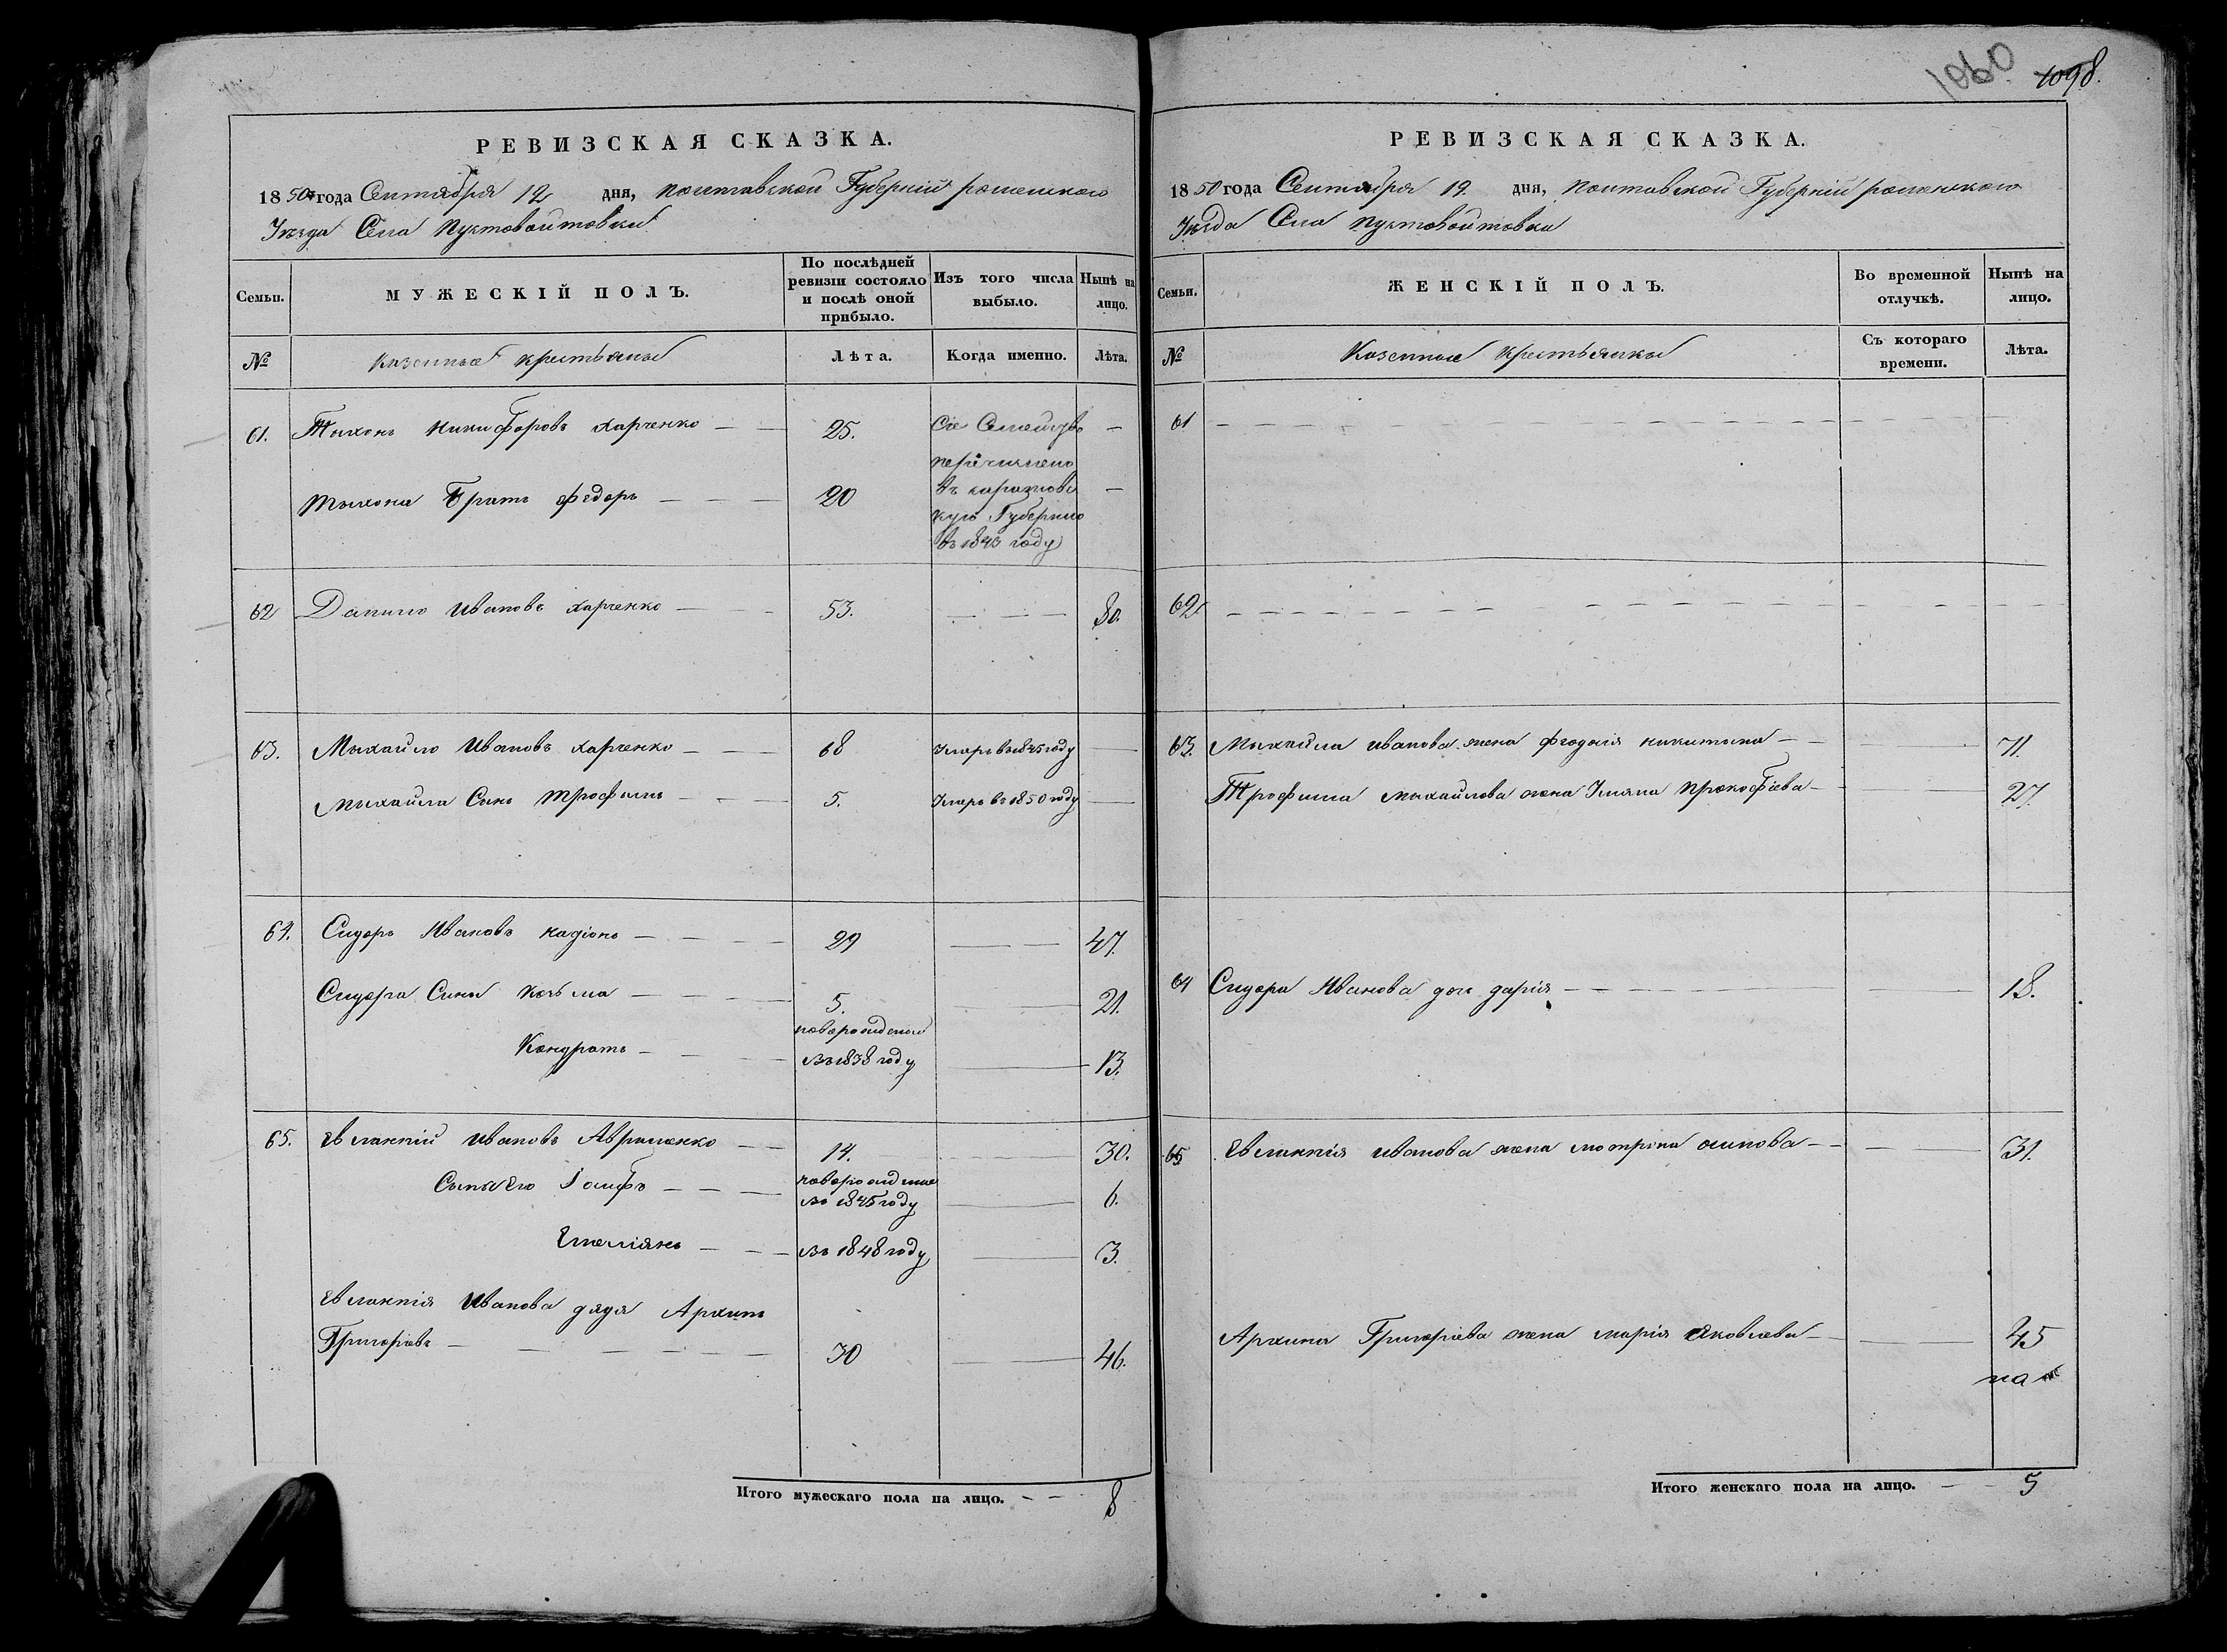 РЕВИЗСКАЯ СКАЗКА.
1850 года Сентября 12 дня, полтавской Губерніи роменского
Уезда Села Пустовойтовки
Семьи. МУЖЕСКІЙ ПОЛЪ. По послѣдней ревизіи состояло и послѣ оной прибыло. Изъ того числа выбыло. Нынѣ на лицо.
№ казенные крестьяны Лѣта. Когда именно. Лѣта.
61. Тыхонъ Никифоровъ харченко 25. Сіе Семейство
перечислено
Тыхона Братъ федоръ 20 въ саратовс
кую Губернию
въ 1843 году
62 Данило Ивановъ харченко 53. 80.
63. Мыхайло Ивановъ харченко 68 Умеръ въ 1845 году
Мыхайла Сынъ Трофимъ 5. Умеръ въ 1850 году
64. Сидоръ Ивановъ кадіонъ 29 47.
Сидора Сины козьма 5. 21.
новорожденой
Кондратъ въ 1838 году 13.
65. Евлакпій Ивановъ Авраменко 14. 30.
новорожденые
Сыны Его Іосифъ въ 1845 году 6.
Емеліянъ въ 1848 году 3.
Евлакпія Иванова дядя Архипъ
Григоріевъ 30 46.
Итого мужескаго пола на лицо. 8
1060 1098.
РЕВИЗСКАЯ СКАЗКА.
1850 года Сентября 12. дня, полтавской Губерніи роменского
Уезда Села Пустовойтовки
Семьи. ЖЕНСКІЙ ПОЛЪ. Во временной отлучкѣ. Нынѣ на лицо.
№ Казенные крестьянки Съ котораго времени. Лѣта.
61
62
63. Мыхайла иванова жена феодосія никитина 71.
Трофима мыхайлова жена Уляна Прокофіева 27.
64 Сидора Иванова доч дарія 18.
65 Евлакпія иванова жена мотрона осипова 31.
Архипа Григоріева жена марія Яковлева 45
Итого женскаго пола на лицо. 5